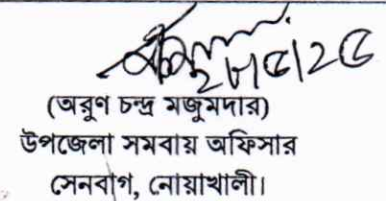 ২৮/৫/২৫
(অরুণ চন্দ্র মজুমদার)
উপজেলা সমবায় অফিসার
সেনবাগ, নোয়াখালী।